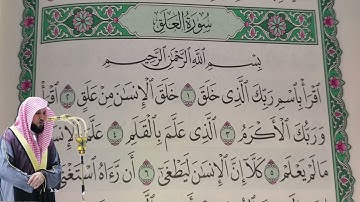 سُورَةُ الْعَلَقِ
بِسْمِ اللَّهِ الرَّحْمَٰنِ الرَّحِيمِ
اقْرَأْ بِاسْمِ رَبِّكَ الَّذِي خَلَقَ ١ خَلَقَ الْإِنسَانَ مِنْ عَلَقٍ ٢ اقْرَأْ
وَرَبُّكَ الْأَكْرَمُ ٣ الَّذِي عَلَّمَ بِالْقَلَمِ ٤ عَلَّمَ الْإِنسَانَ
مَا لَمْ يَعْلَمْ ٥ كَلَّا إِنَّ الْإِنسَانَ لَيَطْغَىٰ ٦ أَن رَّآهُ اسْتَغْنَىٰ